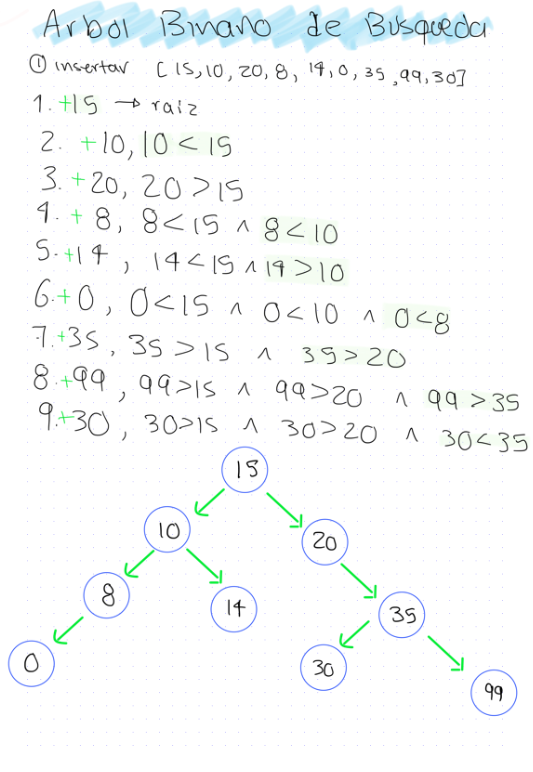 Arbol Binario de Busqueda
① insertar [15,10,20,8,14,0,35,99,30]
1. +15 → raiz
2. +10, 10 < 15
3. +20, 20 > 15
4. + 8, 8 < 15 ∧ 8 < 10
5. +14, 14 < 15 ∧ 14 > 10
6. + 0, 0 < 15 ∧ 0 < 10 ∧ 0 < 8
7. +35, 35 > 15 ∧ 35 > 20
8. +99, 99 > 15 ∧ 99 > 20 ∧ 99 > 35
9. +30, 30 > 15 ∧ 30 > 20 ∧ 30 < 35
15
10 20
8 14 35
0 30 99